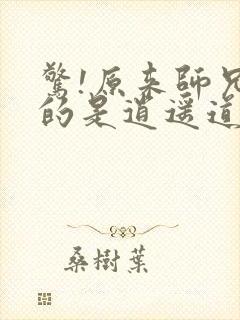 驚!原來師兄
的是逍遥道
桑樹葉